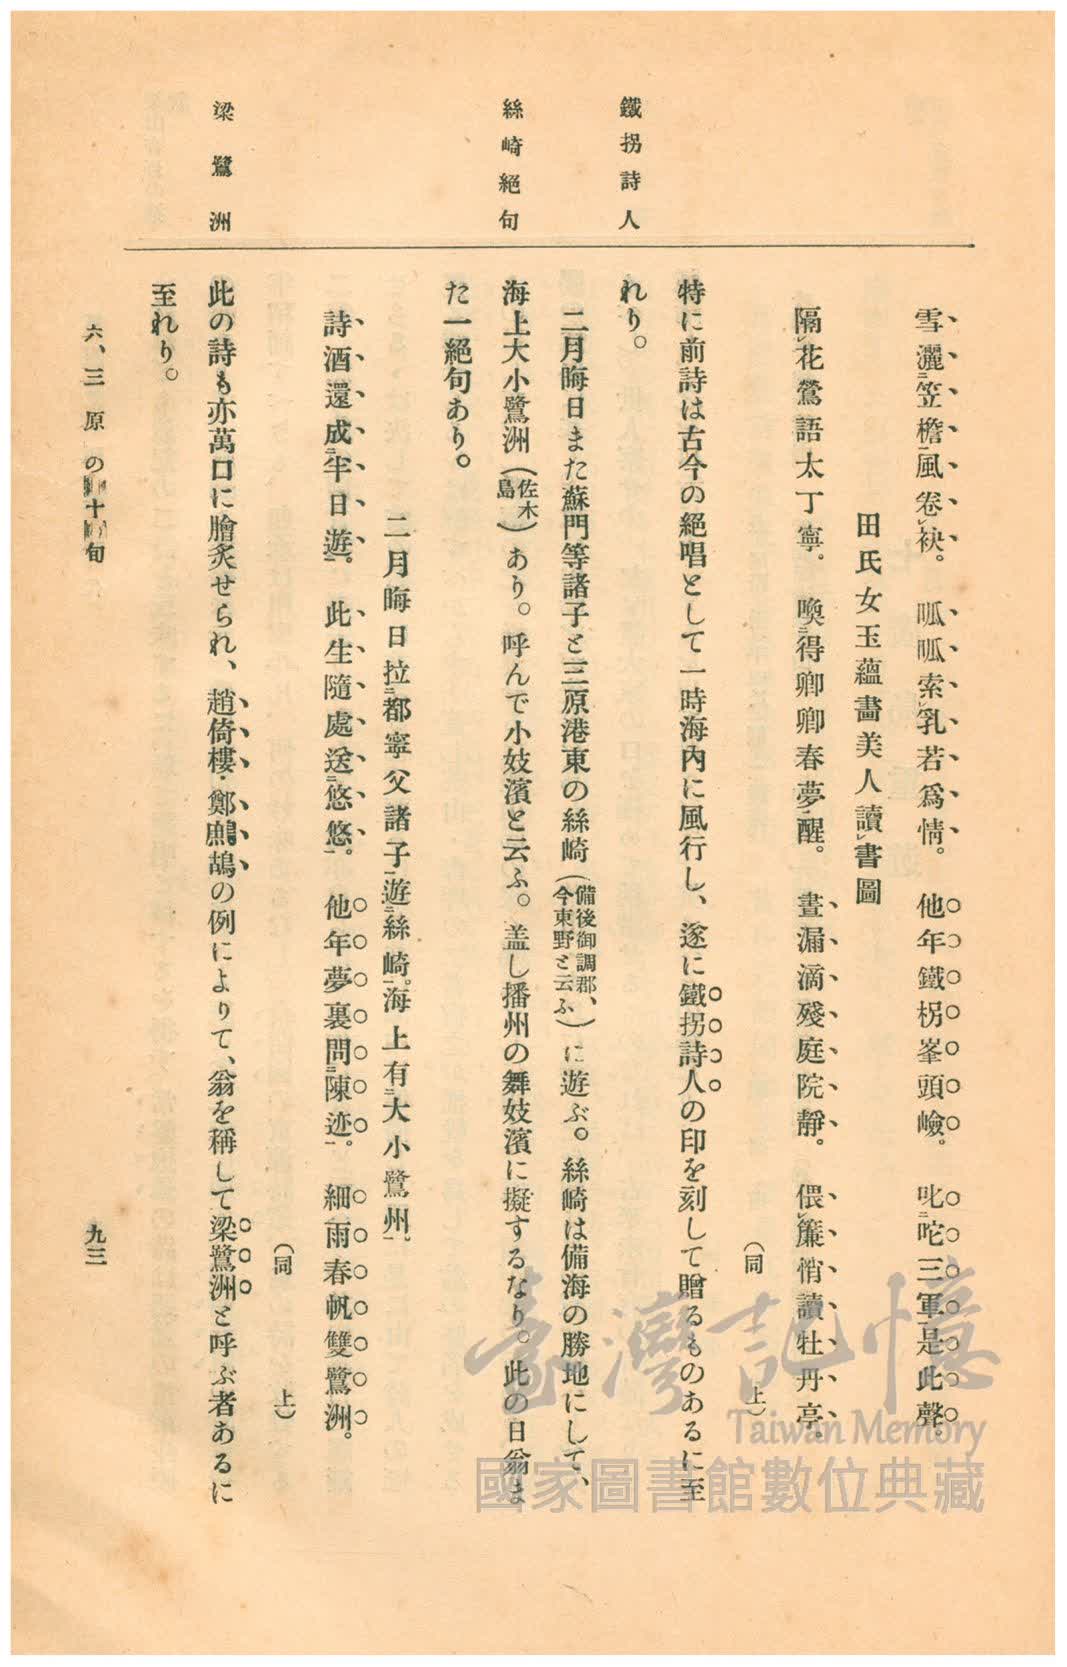 鐵拐詩人
絲崎絕句
梁鷺洲
雪灑二笠檐一風卷レ袂。 呱呱索レ乳若爲情。 他年鐵枴峯頭嶮。 叱二咜三軍一是此聲。
田氏女玉蘊畫美人讀レ書圖
隔レ花鶯語太丁寧。 喚二得卿卿春夢一醒。 晝漏滴殘庭院靜。 偎レ簾悄讀牡丹亭。
(同 上)
特に前詩は古今の絕唱として一時海內に風行し、遂に鐵拐詩人の印を刻して贈るものあるに至
れり。
二月晦日また蘇門等諸子と三原港東の絲崎(備後御調郡、今東野と云ふ)に遊ぶ。絲崎は備海の勝地にして、
海上大小鷺洲(佐木島)あり。呼んで小妓濱と云ふ。盖し播州の舞妓濱に擬するなり。此の日翁ま
た一絕句あり。
二月晦日拉二都寧父諸子一遊二絲崎一。海上有二大小鷺州一。
詩酒還成二半日遊一。 此生隨處送二悠悠一。 他年夢裏問二陳迹一。 細雨春帆雙鷺洲。
(同 上)
此の詩も亦萬口に膾炙せられ、趙倚樓・鄭鷓鴣の例によりて、翁を稱して梁鷺洲と呼ぶ者あるに
至れり。
六、三原の十旬
九三
臺灣記憶
Taiwan Memory
國家圖書館數位典藏